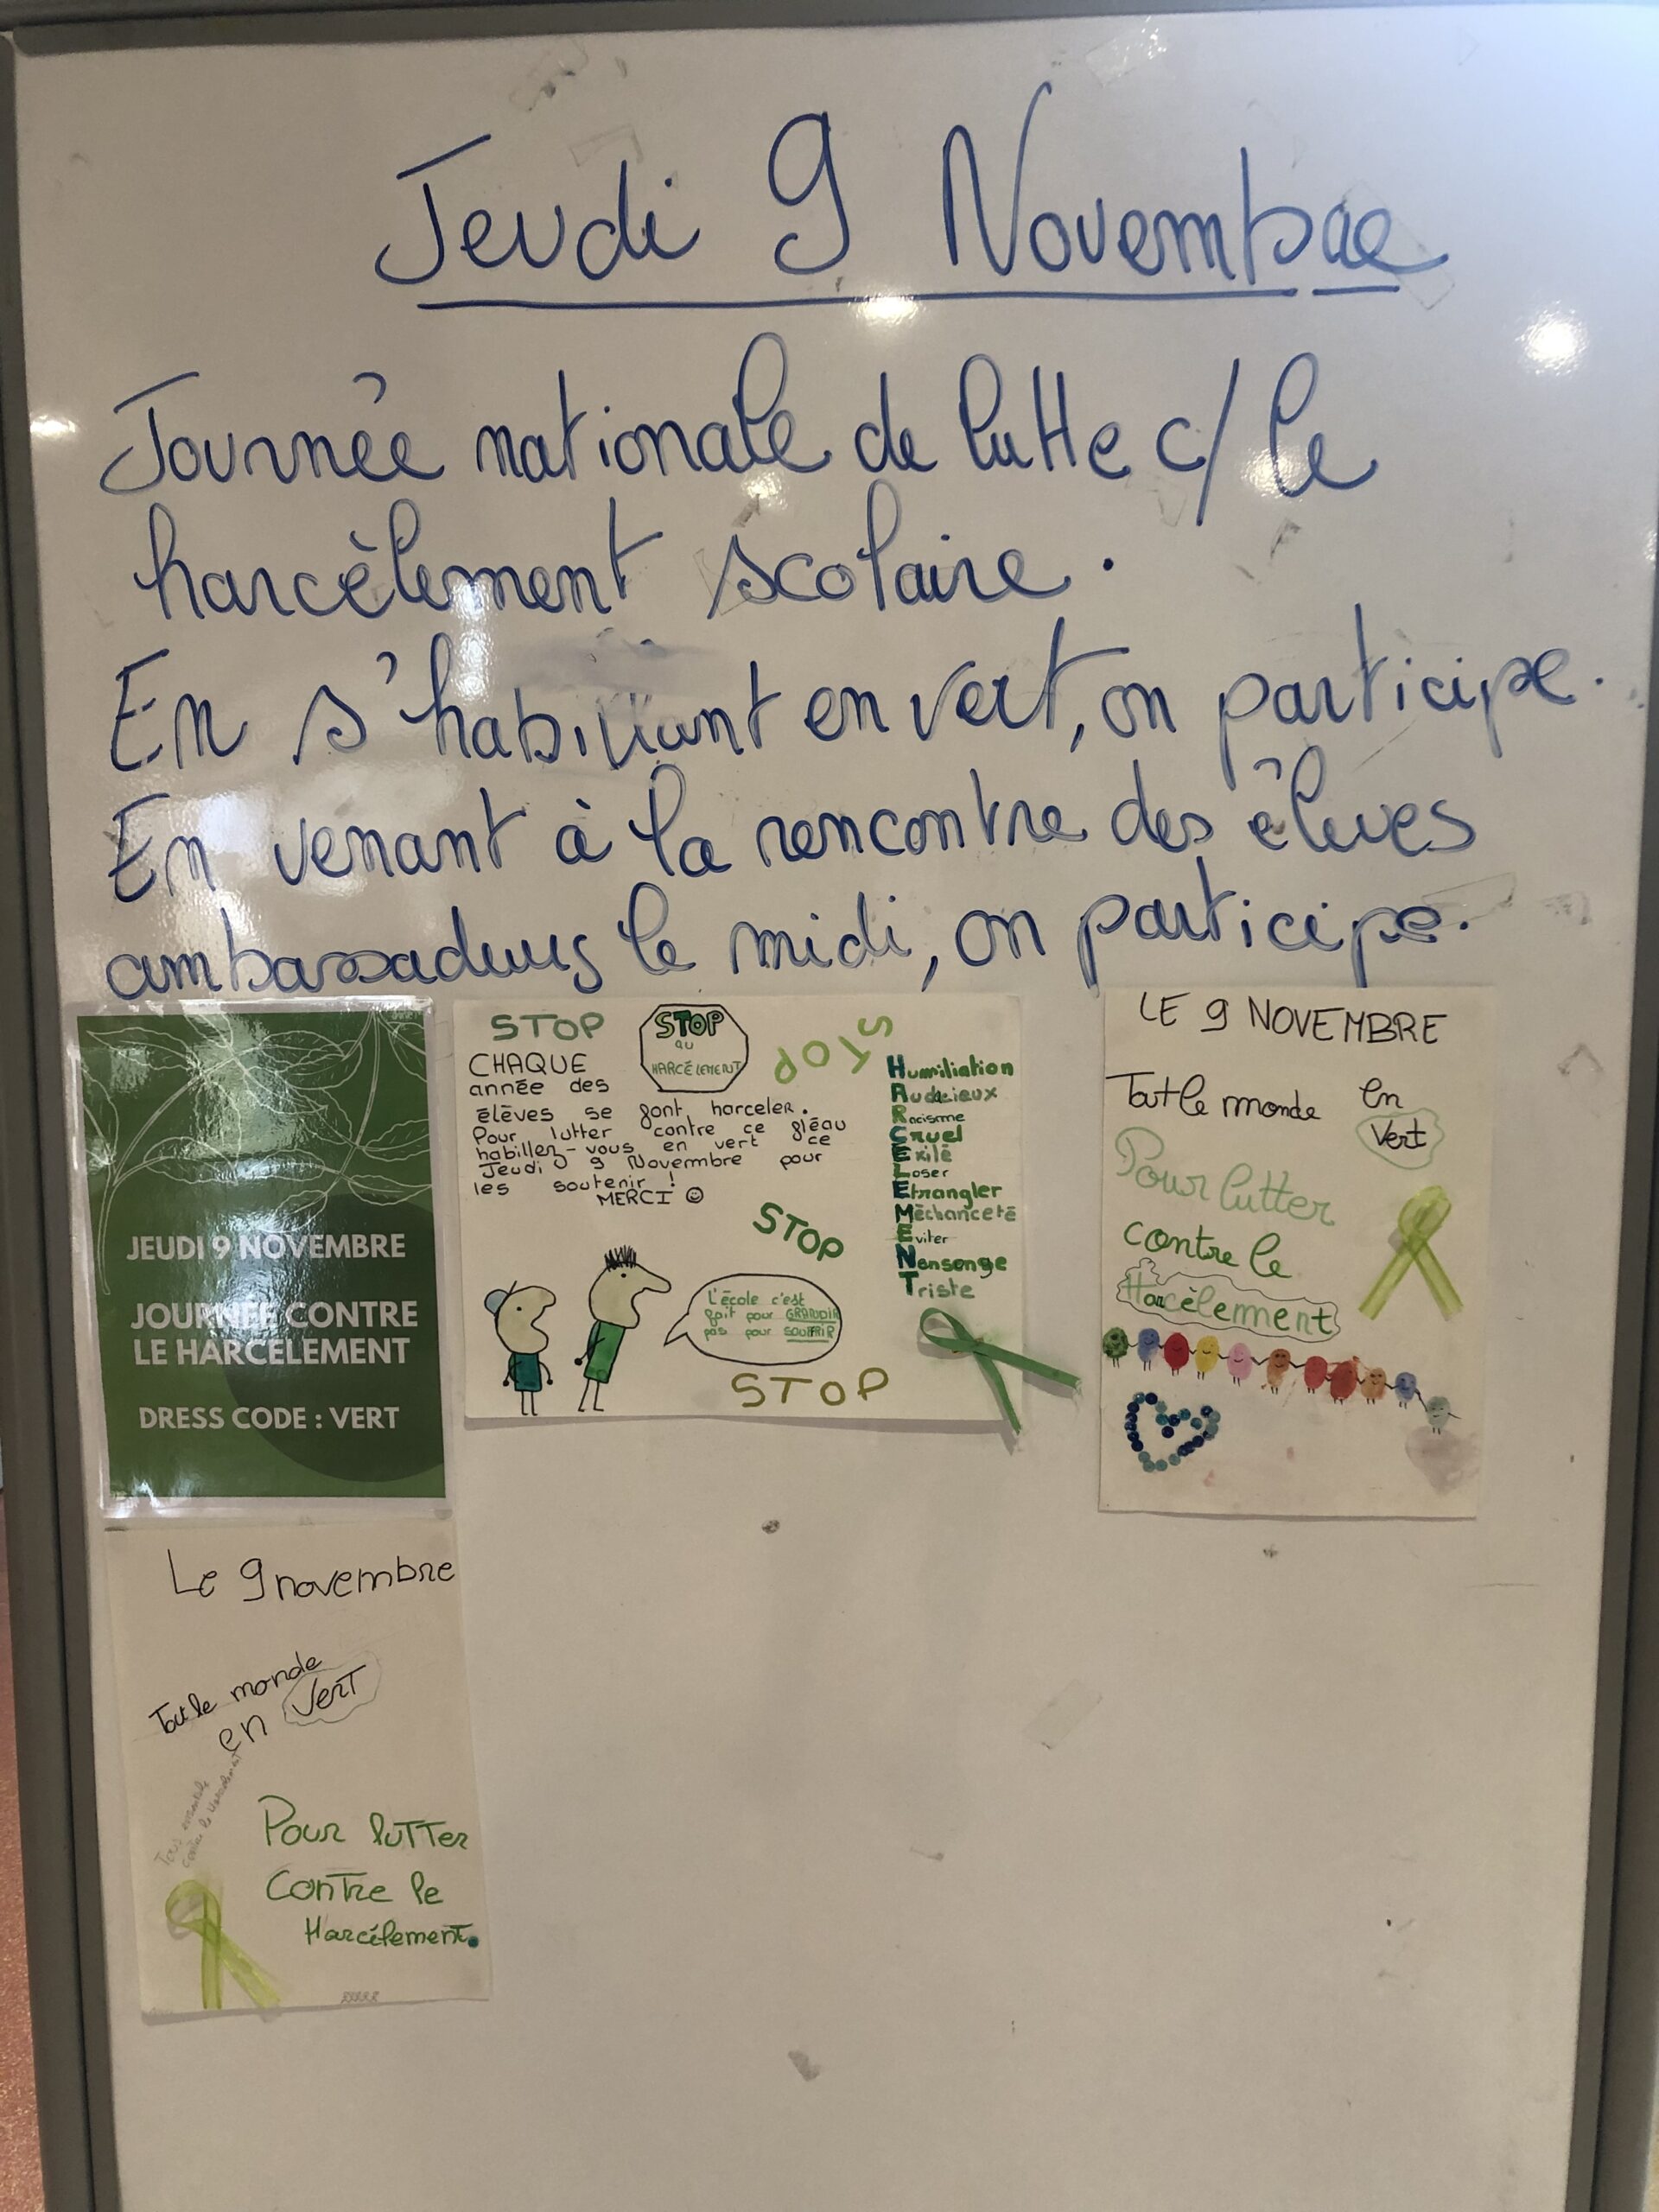 Jeudi 9 Novembre
Journée nationale de lutte c/ le
harcèlement scolaire.
En s'habillant en vert, on participe.
En venant à la rencontre des élèves
ambassadeurs le midi, on participe.
JEUDI 9 NOVEMBRE
JOURNÉE CONTRE
LE HARCELEMENT
DRESS CODE : VERT
STOP
CHAQUE
année des
élèves se font harceler.
Pour lutter contre ce fléau
habillez-vous en vert ce
Jeudi 9 Novembre pour
les soutenir !
MERCI ☺
STOP
au
HARCÉLEMENT
STOP
Humiliation
Audacieux
Racisme
Cruel
Exilé
Loser
Etrangler
Méchanceté
Eviter
Nensonge
Triste
STOP
L'école c'est
fait pour GRANDIR
pas pour SOUFFRIR
STOP
LE 9 NOVEMBRE
Tout le monde en
Vert
Pour lutter
contre le
Harcèlement
Le 9 novembre
Tout le monde
en VerT
Tous ensemble
contre le harcèlement
Pour luTTer
ConTre le
Harcélement.